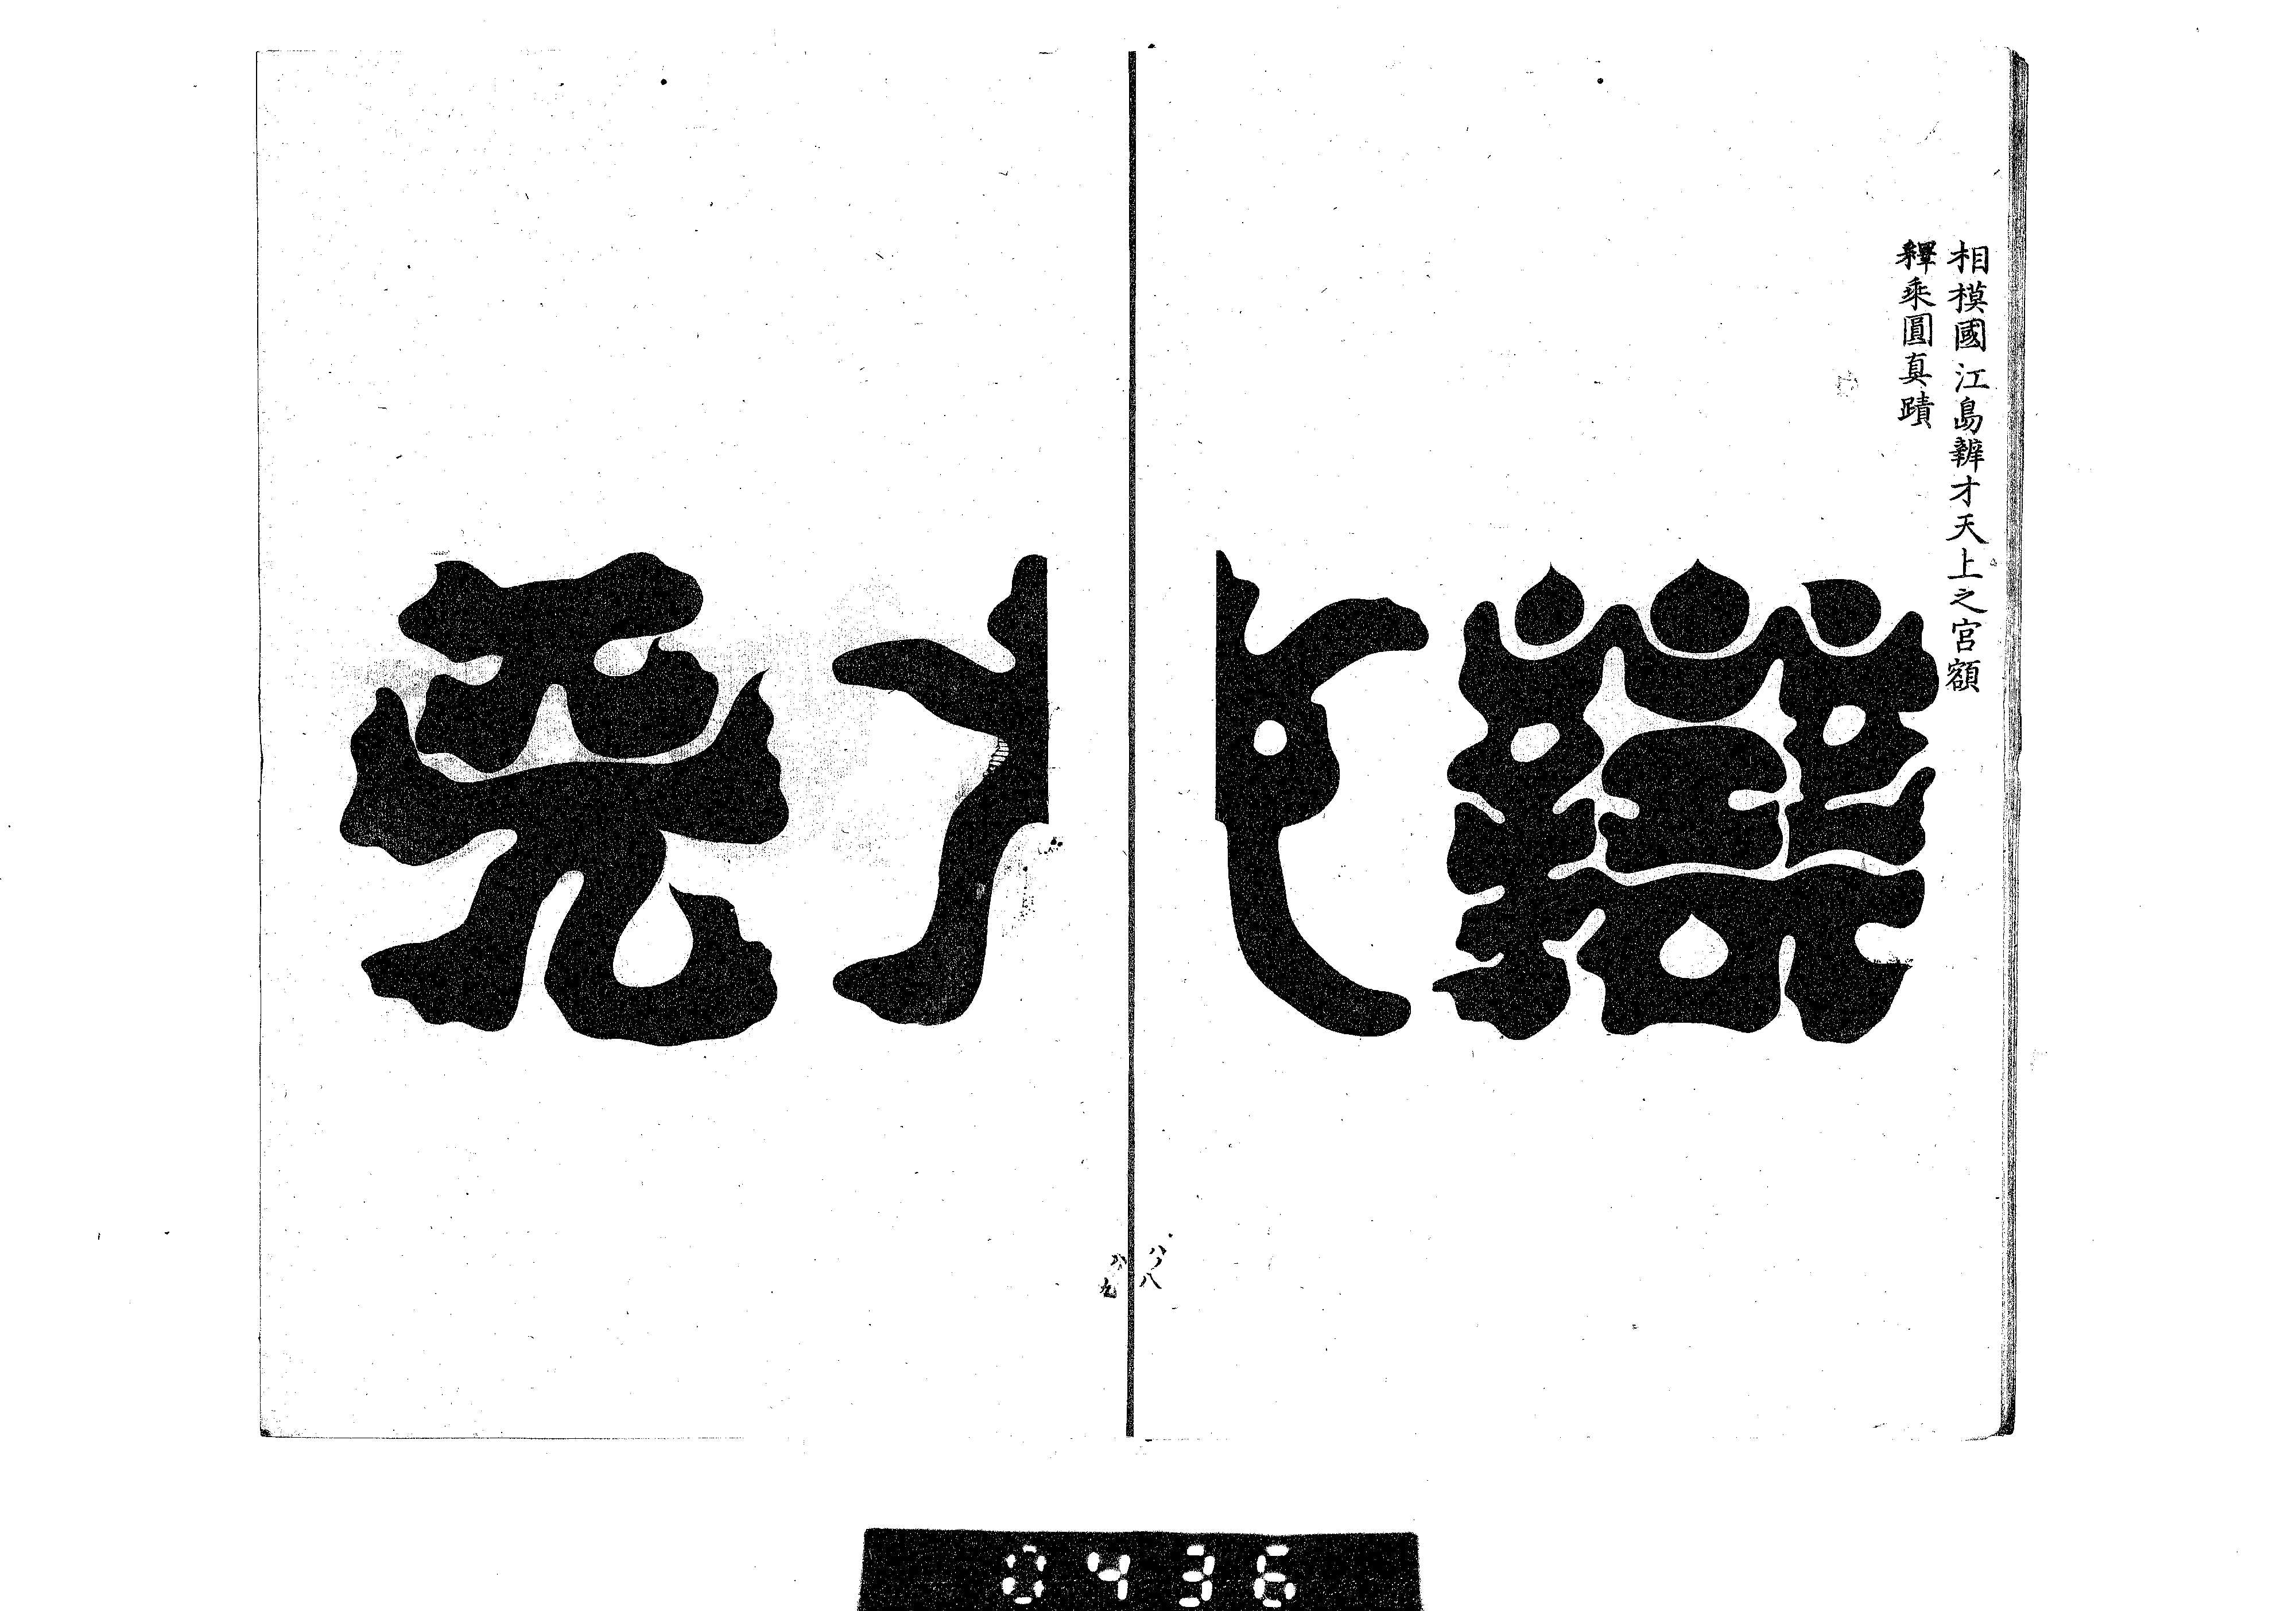 相模國江島辨才天上之宮額
釋乘圓真蹟
辨才天
八ノ八
八ノ九
0436